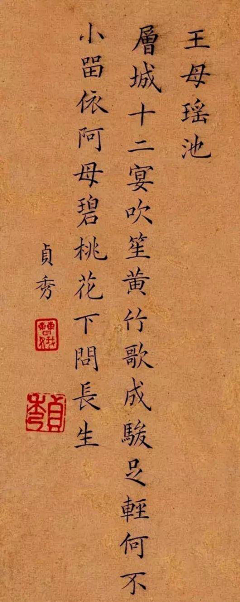 王母瑶池
層城十二宴吹笙黄竹歌成駿足輕何不
小留依阿母碧桃花下問長生
貞秀